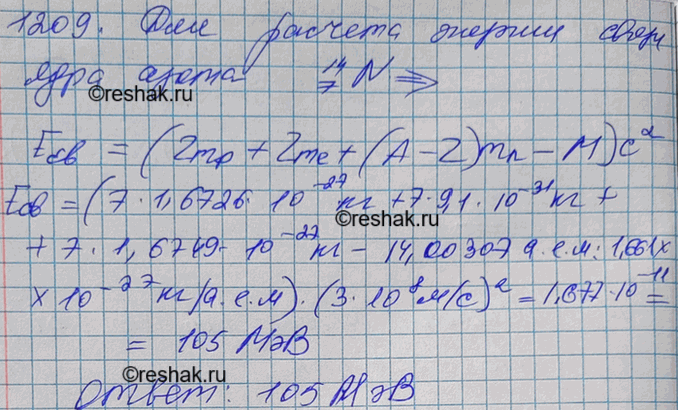 1209. Для расчета энергии связи
ядра азота ¹⁴₇N ⇒
©reshak.ru
Eсв = (Zmp + Zme + (A − Z)mn − M)c²
Eсв = (7 · 1,6726 · 10⁻²⁷ кг + 7 · 9,1 · 10⁻³¹ кг +
©reshak.ru
+ 7 · 1,6749 · 10⁻²⁷ кг − 14,00307 а.е.м · 1,661 ×
× 10⁻²⁷ кг/а.е.м) · (3 · 10⁸ м/с)² = 1,677 · 10⁻¹¹ =
= 105 МэВ
©reshak.ru
Ответ: 105 МэВ